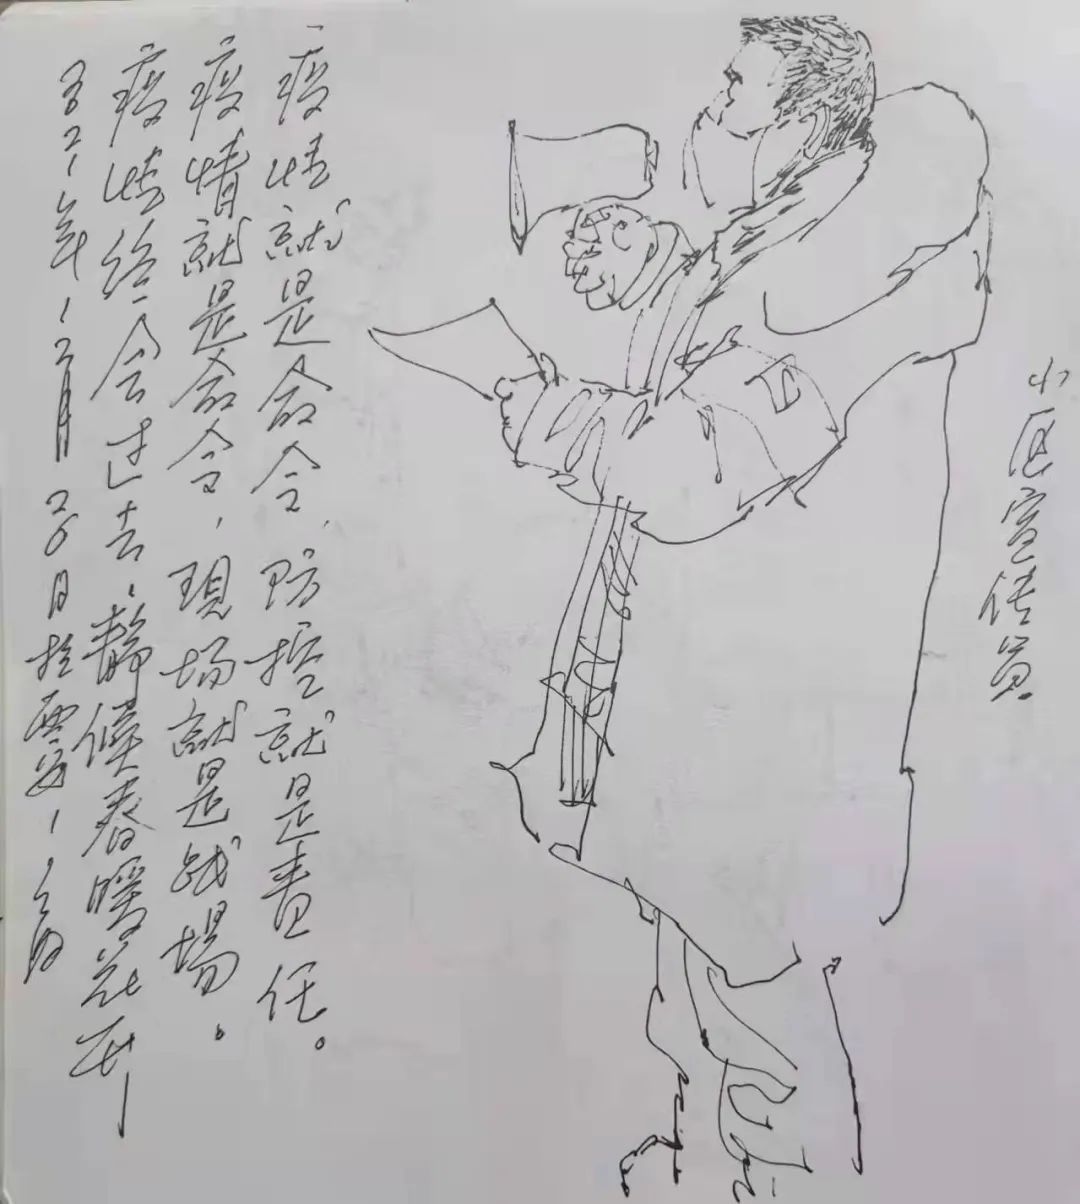 小区宣传员
疫情就是命令,防控就是责任。
疫情就是命令,现场就是战场。
疫情终会过去,静候春暖花开
年12月26日于西安